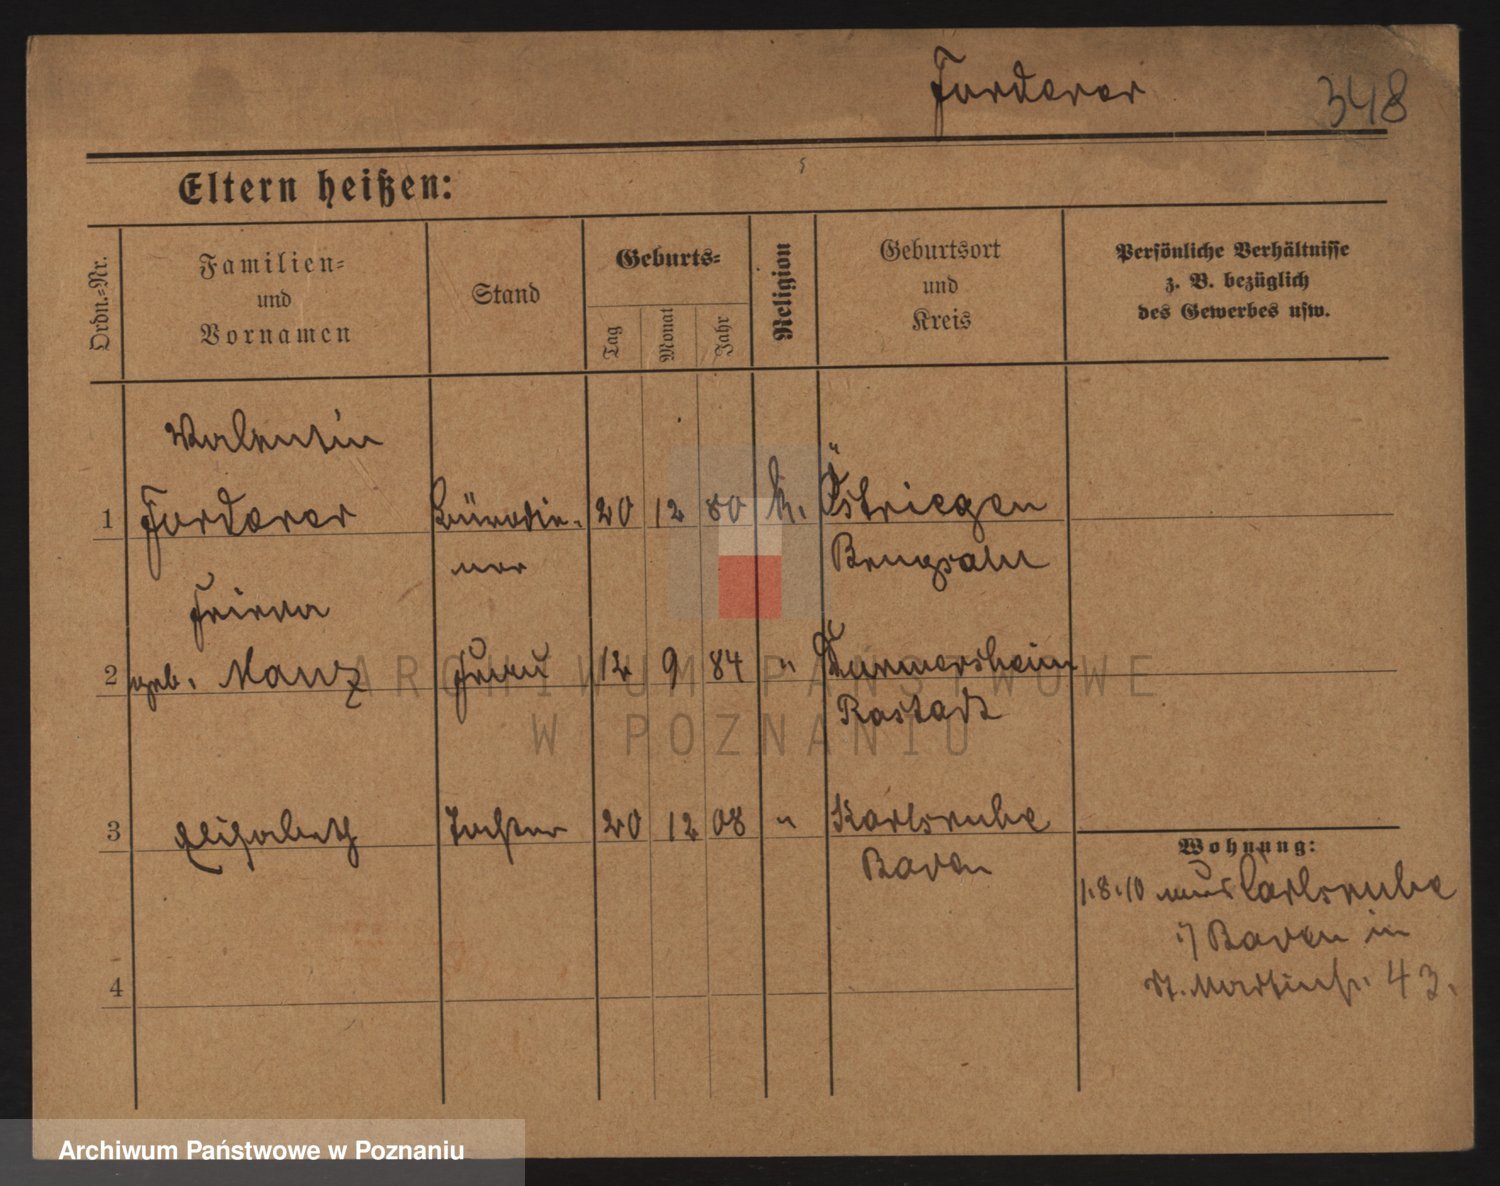 Forderer 348
Eltern heißen:
Ordn.-Nr.
Familien-
und
Vornamen
Stand
Geburts-
Tag
Monat
Jahr
Religion
Geburtsort
und
Kreis
Persönliche Verhältnisse
z. B. bezüglich
des Gewerbes usw.
Valentin
1 Forderer Bürodie- 20 12 80 k. Östringen
ner Bruchsal
2 geb. Manz Frau 12 9 84 " Durmersheim
Rastadt
3 Elisabeth Tochter 20 12 08 " Karlsruhe
Baden
Wohnung:
1.8.10 aus Carlsruhe
i/ Baden in
St. Martinstr. 43.
4
ARCHIWUM PAŃSTWOWE
W POZNANIU
Archiwum Państwowe w Poznaniu